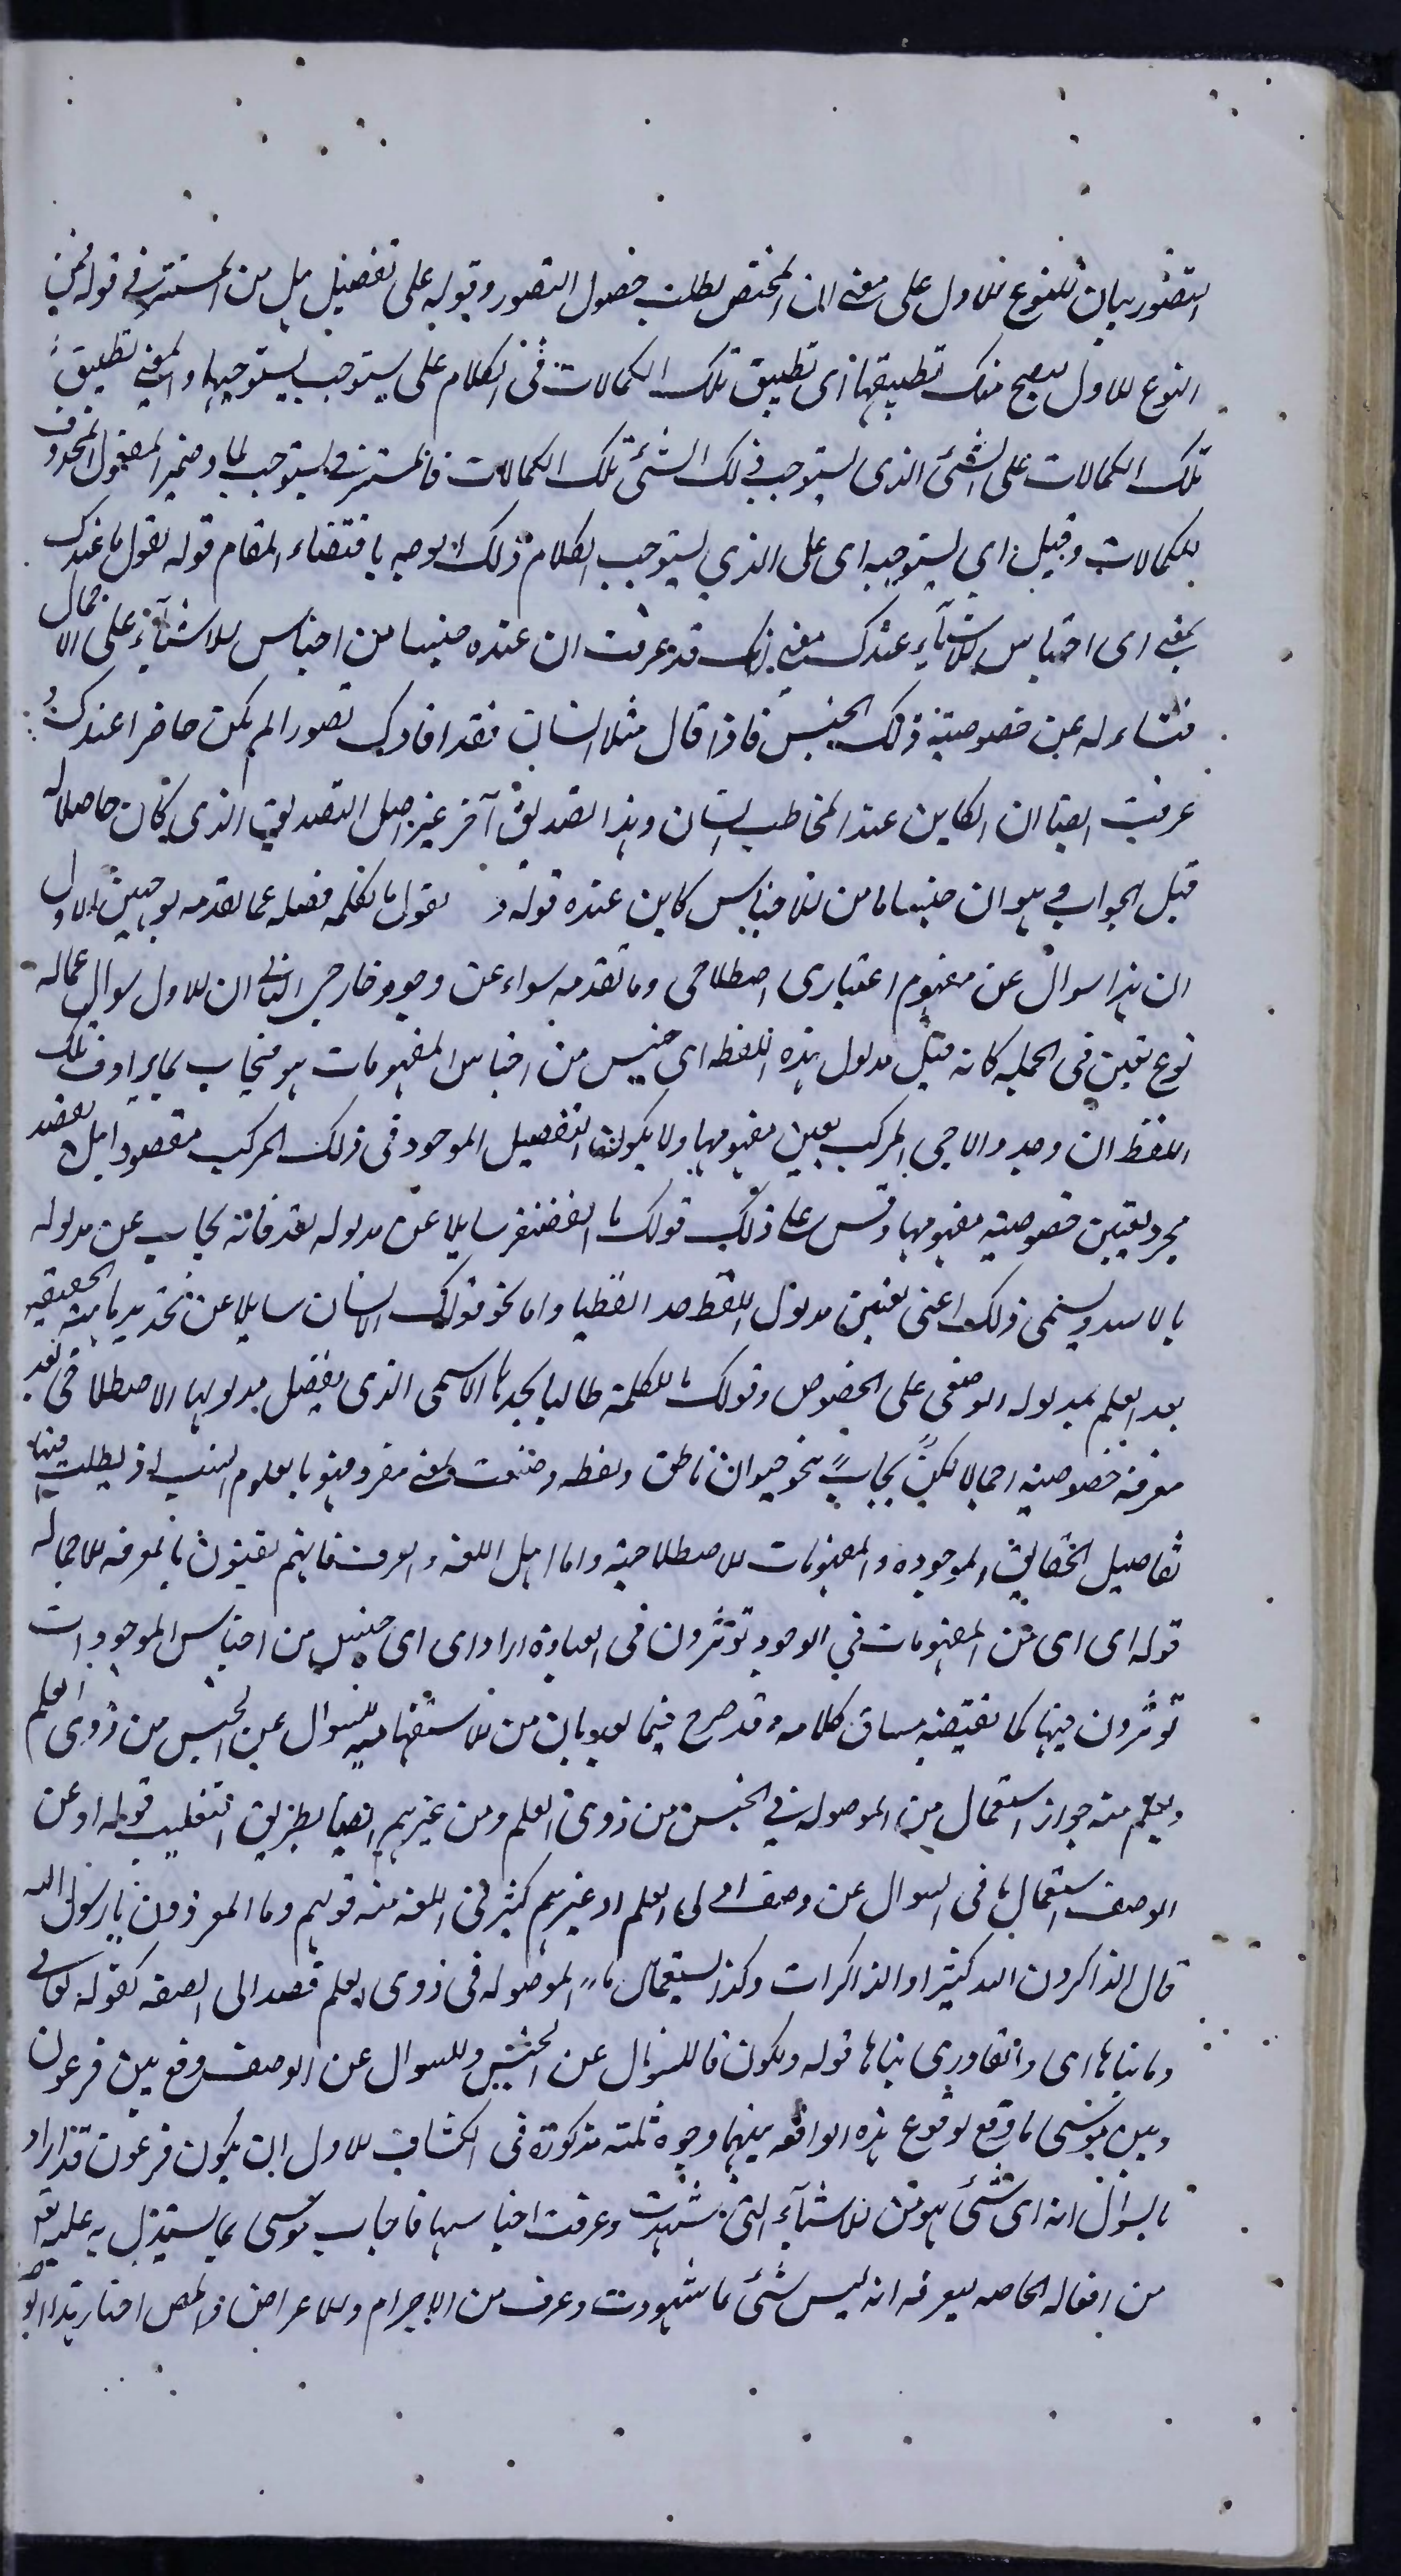 التصور بيان للنوع الاول على معنى ان المختص لطلب حصول التصور وقوله على تفصيل بدل من المستتر في قوله فمن
النوع الاول ليصح منك تطبيقها اى تطبيق تلك الكمالات فى الكلام على يستوجب يستوجبها والمعنى تطبيق
تلك الكمالات على الشئ الذى يستوجب ذلك الشئ تلك الكمالات فالمستتر فى يستوجب لما وضمير المفعول المحذوف
للكمالات وقيل اي يستوجبه اى على الذي يستوجب الكلام ذلك بوجه باقتضاء المقام قوله تقول ما عندك
بمعنى اى اجناس الاشياء عندك معنى انك قد عرفت ان عنده جنسا من اجناس الاشياء على الاجمال
فتساءله عن خصوصية ذلك الجنس فاذا قال مثلا انسان فقد افادك تصورا لم يكن حاضرا عندك و
عرفت ايضا ان الكاين عند المخاطب انسان وهذا تصديق آخر غير اصل التصديق الذى كان حاصلا له
قبل الجواب وهو ان جنسا ما من الاجناس كاين عنده قوله و تقول ما الكلمة فصله عما تقدمه بوجهين الاول
ان هذا سوال عن مفهوم اعتبارى اصطلاحى وما تقدمه سواء عن وجود خارجى الثانى ان الاول سوال عما له
نوع تعين فى الجملة كانه قيل مدلول هذه اللفظة اى جنس من اجناس المفهومات هو فيجاب بما يرادف تلك
اللفظة ان وجد والا جى المركب يعين مفهومها ولا يكون التفصيل الموجود فى ذلك المركب مقصودا بل قصد
مجرد تعيين خصوصية مفهومها وقس على ذلك قولك ما الغضنفر سايلا عن مدلوله لغة فانه يجاب عن مدلوله
بالاسد ويسمى ذلك اعنى تعيين مدلول اللفظ حدا لفظيا واما نحو قولك ما الانسان سايلا عن تحديد ماهيته الحقيقية
بعد العلم بمدلوله الوضعى على الخصوص وقولك ما الكلمة طالبا لحدها الاسمى الذى يفصل مدلولها الاصطلاحى بعد
معرفة خصوصيته اجمالا لكن يجاب بنحو حيوان ناطق ولفظة وضعت لمعنى مفرد فهو بالعلوم انسب اذ يطلب فيها
تفاصيل الحقايق الموجوده والمفهومات الاصطلاحية واما اهل اللغة والعرف فانهم يقنعون بالمعرفة الاجمالية
قوله اى اى من المفهومات في الوجود تؤثرون فى العبادة اراد اى اى جنس من اجناس الموجودات
تؤثرون فيها كما يقتضيه مساق كلامه وقد صرح فيما بعد بان من الاستفهامية للسوال عن الجنس من ذوى العلم
ويعلم منه جواز استعمال من الموصولة في الجنس من ذوى العلم ومن غيرهم ايضا بطريق التغليب قوله او عن
الوصف استعمال ما فى السوال عن وصف اولى العلم او غيرهم كثير فى اللغة منه قولهم وما المفردون يا رسول الله
قال الذاكرون الله كثيرا والذاكرات وكذا استعمال ما الموصولة فى ذوى العلم قصدا الى الصفة كقوله تعالى
وما بناها اى والقادر الذى بناها قوله ولكون ما للسوال عن الجنس وللسوال عن الوصف وقع بين فرعون
وبين موسى ما وقع لوقوع هذه الواقعة بينهما وجوه ثلثة مذكورة فى الكشاف الاول ان يكون فرعون قد اراد
بالسوال انه اى شئ هو من الاشياء التى شهدت وعرفت اجناسها فاجاب موسى بما يستدل به عليه
من افعاله الخاصة ليعرفه انه ليس شئ مما شوهدت وعرف من الاجرام والاعراض والمص اختار هذا